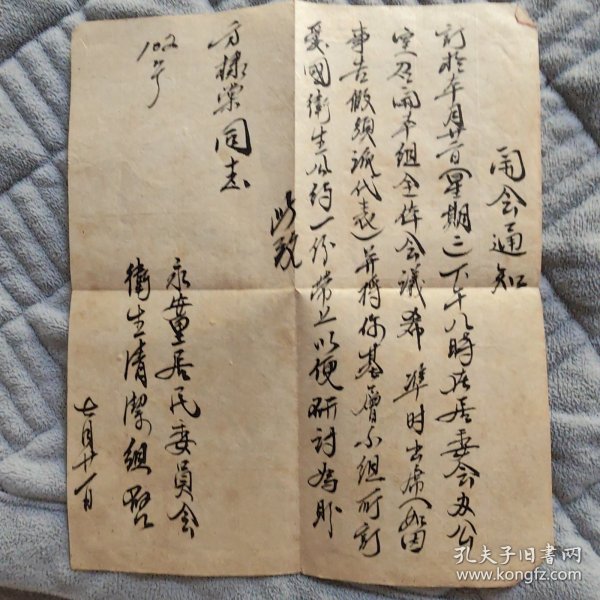 開会通知
訂於本月廿二日(星期三)下午八時在居委会办公
室召開本组全体会議希 準时出席(如因
事告假须派代表)并将你基層小组所訂
爱國衛生公約一份带上以便研討為盼
此致
方棣棠同志
102号
永業居民委員会
衛生清潔组啓
七月廿一日
孔夫子旧书网
www.kongfz.com